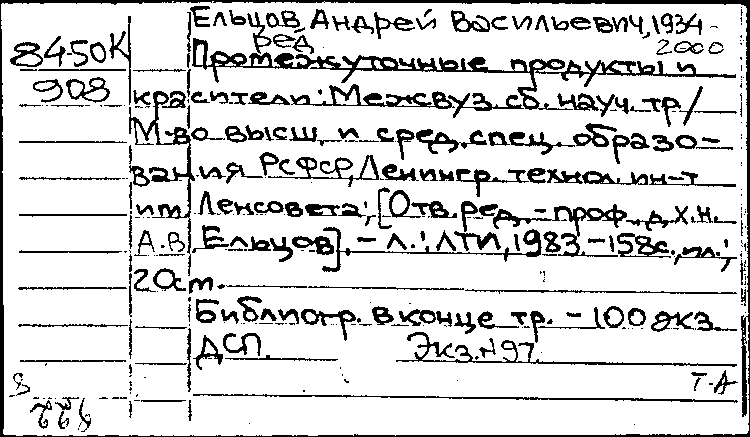 Ельцов, Андрей Васильевич, 1934-
ред 2000
84-50К Промежуточные продукты и
908 красители: Межвуз. сб. науч. тр. /
М-во высш. и сред. спец. образо-
вания РСФСР, Ленингр. технол. ин-т
им. Ленсовета; [Отв. ред. - проф., д.х.н.
А.В. Ельцов]. - Л.: ЛТИ, 1983. - 158с., ил.;
20см.
Библиогр. в конце тр. - 100 экз.
ДСП. Экз. N 97.
Т-А
8